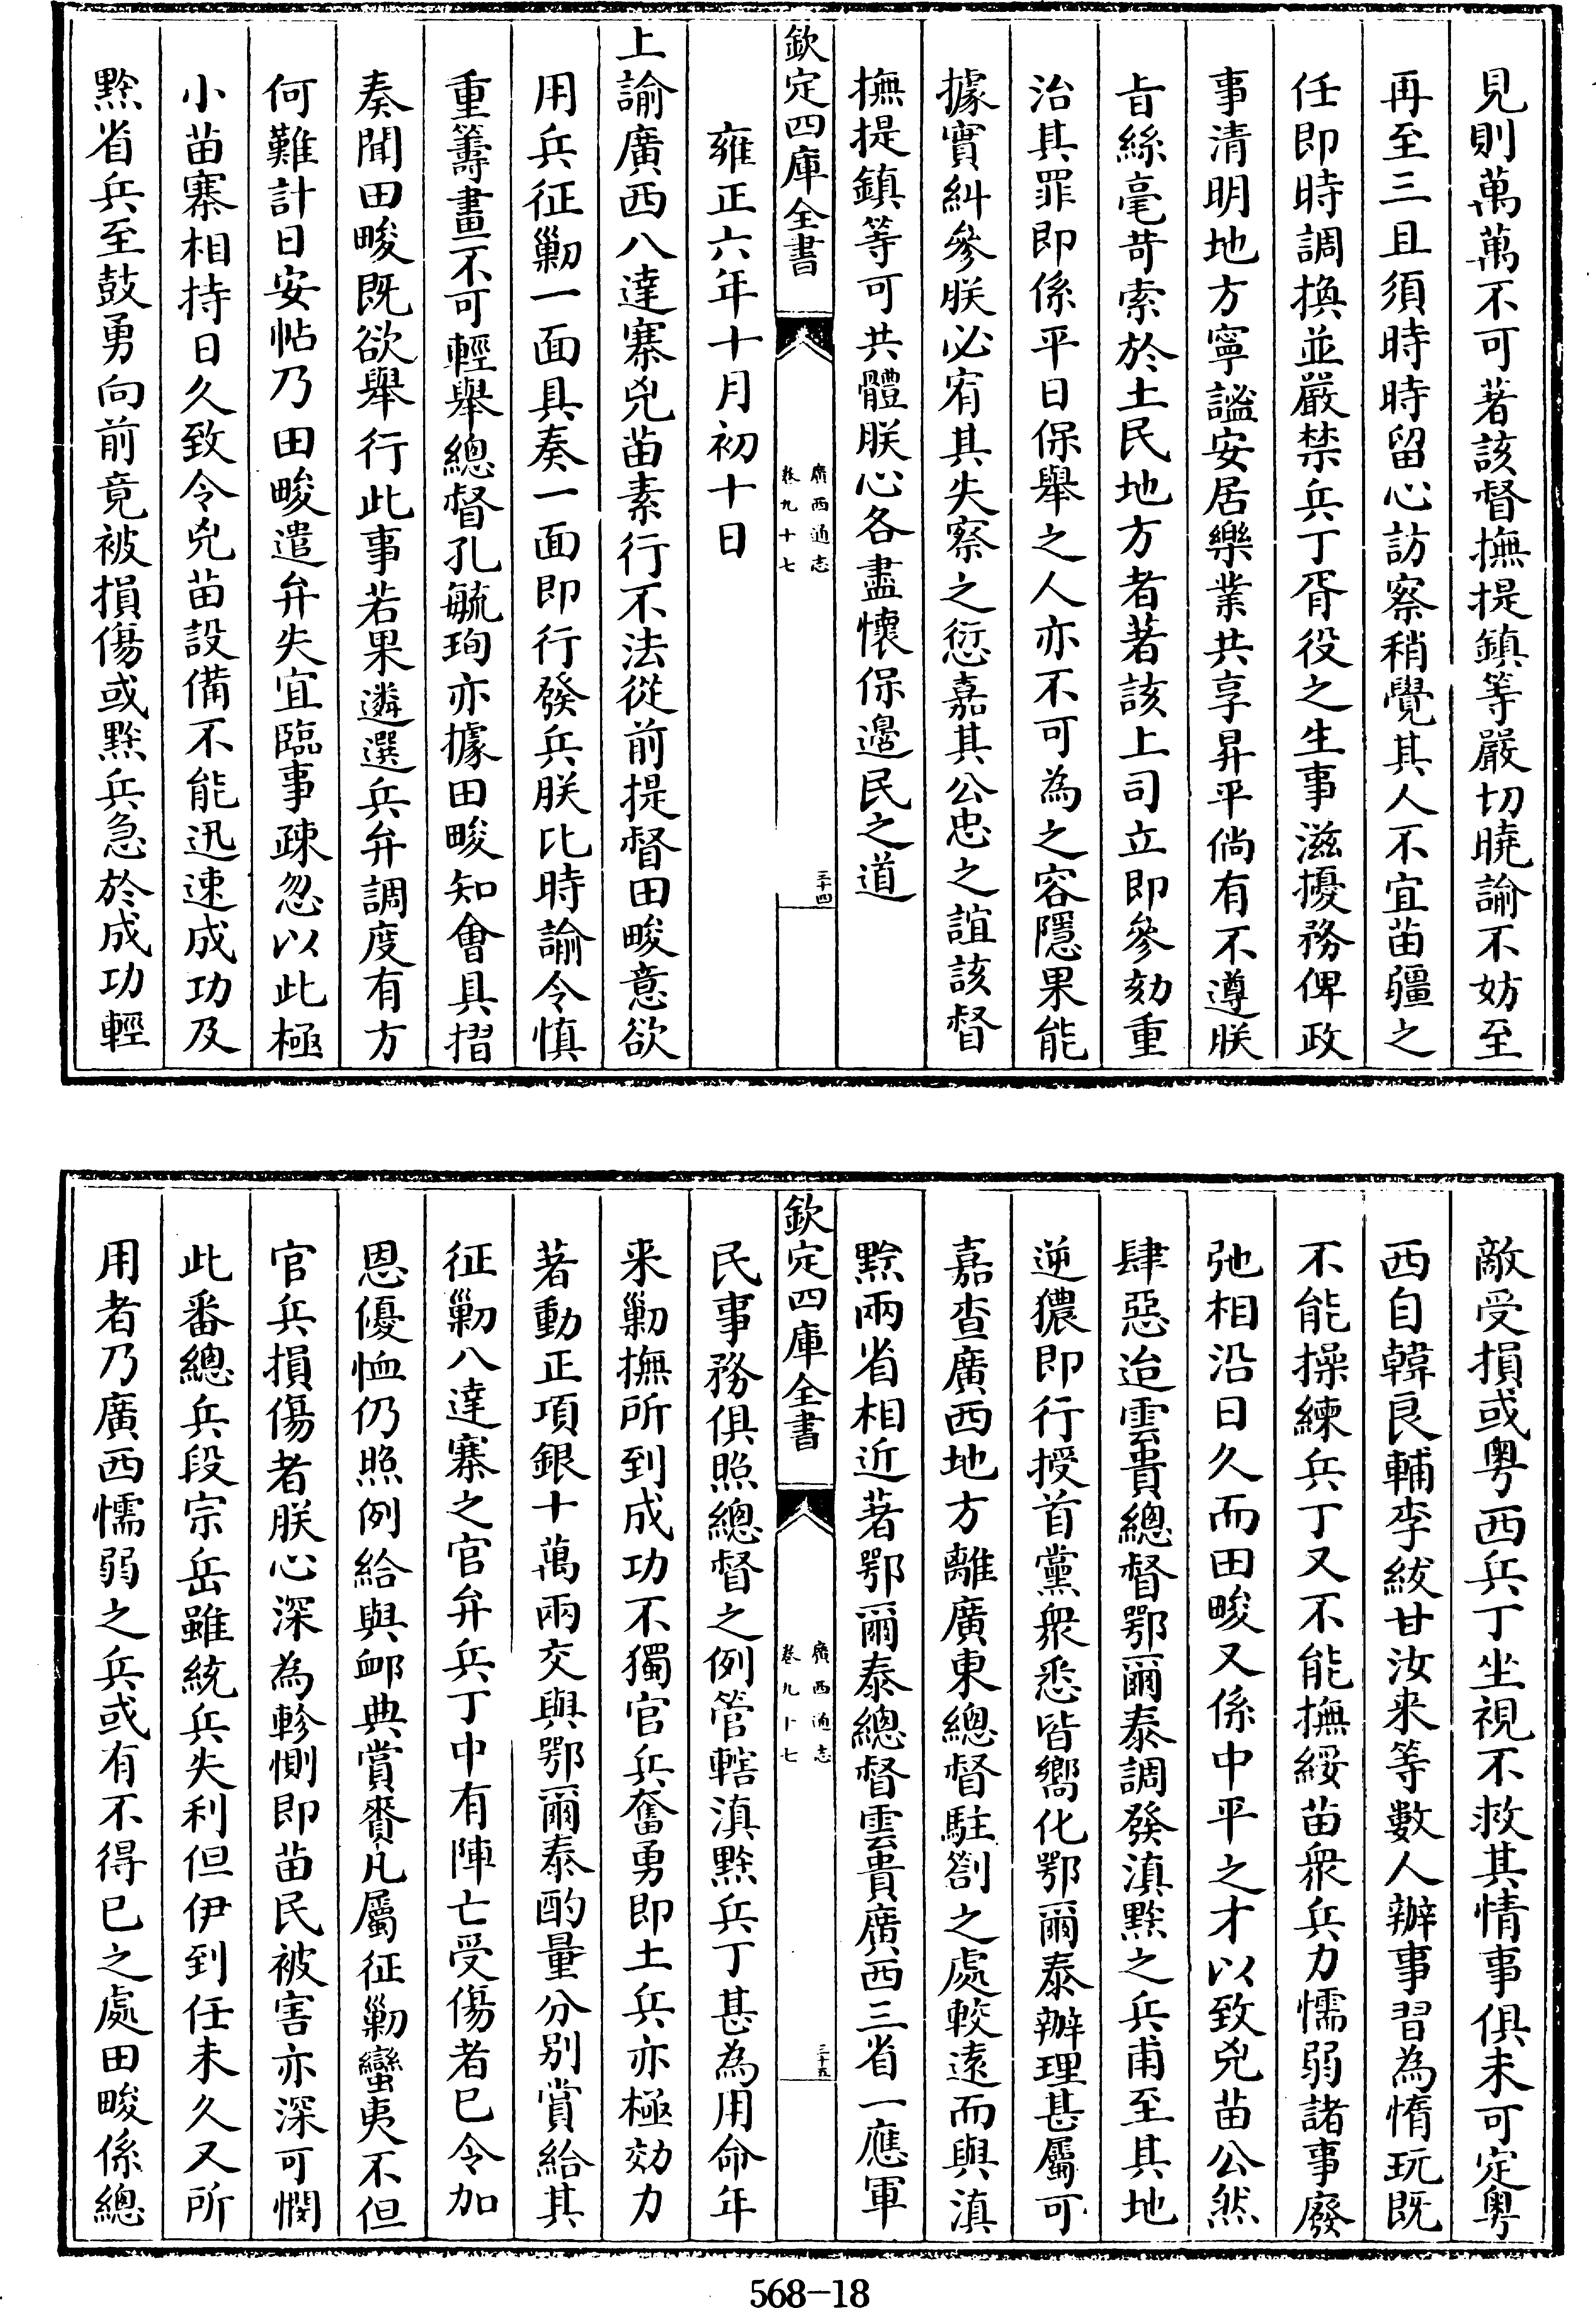 見則萬萬不可著該督撫提鎮等嚴切曉諭不妨至
再至三且須時時留心訪察稍覺其人不宜苗疆之
任即時調換並嚴禁兵丁胥役之生事滋擾務俾政
事清明地方寧謐安居樂業共享昇平倘有不遵朕
旨絲毫苛索於土民地方者著該上司立即參劾重
治其罪即係平日保舉之人亦不可為之容隱果能
據實糾參朕必宥其失察之愆嘉其公忠之誼該督
撫提鎮等可共體朕心各盡懷保邊民之道
欽定四庫全書
廣西通志
卷九十七
三十四
雍正六年十月初十日
上諭廣西八達寨兇苗素行不法從前提督田畯意欲
用兵征勦一面具奏一面即行發兵朕比時諭令慎
重籌畫不可輕舉總督孔毓珣亦據田畯知會具摺
奏聞田畯既欲舉行此事若果遴選兵弁調度有方
何難計日安帖乃田畯遣弁失宜臨事疎忽以此極
小苗寨相持日久致令兇苗設備不能迅速成功及
黔省兵至鼓勇向前竟被損傷或黔兵急於成功輕
敵受損或粤西兵丁坐視不救其情事俱未可定粤
西自韓良輔李紱甘汝来等數人辦事習為惰玩既
不能操練兵丁又不能撫綏苗衆兵力懦弱諸事廢
弛相沿日久而田畯又係中平之才以致兇苗公然
肆惡迨雲貴總督鄂爾泰調發滇黔之兵甫至其地
逆猥即行授首黨衆悉皆嚮化鄂爾泰辦理甚屬可
嘉查廣西地方離廣東總督駐劄之處較遠而與滇
黔兩省相近著鄂爾泰總督雲貴廣西三省一應軍
欽定四庫全書
廣西通志
卷九十七
三十五
民事務俱照總督之例管轄滇黔兵丁甚為用命年
来勦撫所到成功不獨官兵奮勇即土兵亦極効力
著動正項銀十萬兩交與鄂爾泰酌量分別賞給其
征勦八達寨之官弁兵丁中有陣亡受傷者已令加
恩優恤仍照例給與卹典賞賚凡屬征勦蠻夷不但
官兵損傷者朕心深為軫惻即苗民被害亦深可憫
此番總兵段宗岳雖統兵失利但伊到任未久又所
用者乃廣西懦弱之兵或有不得已之處田畯係總
568-18